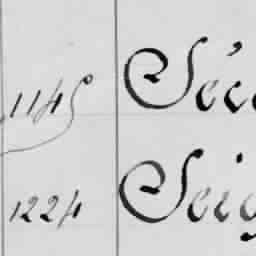 1145 Séc
1224 Seig